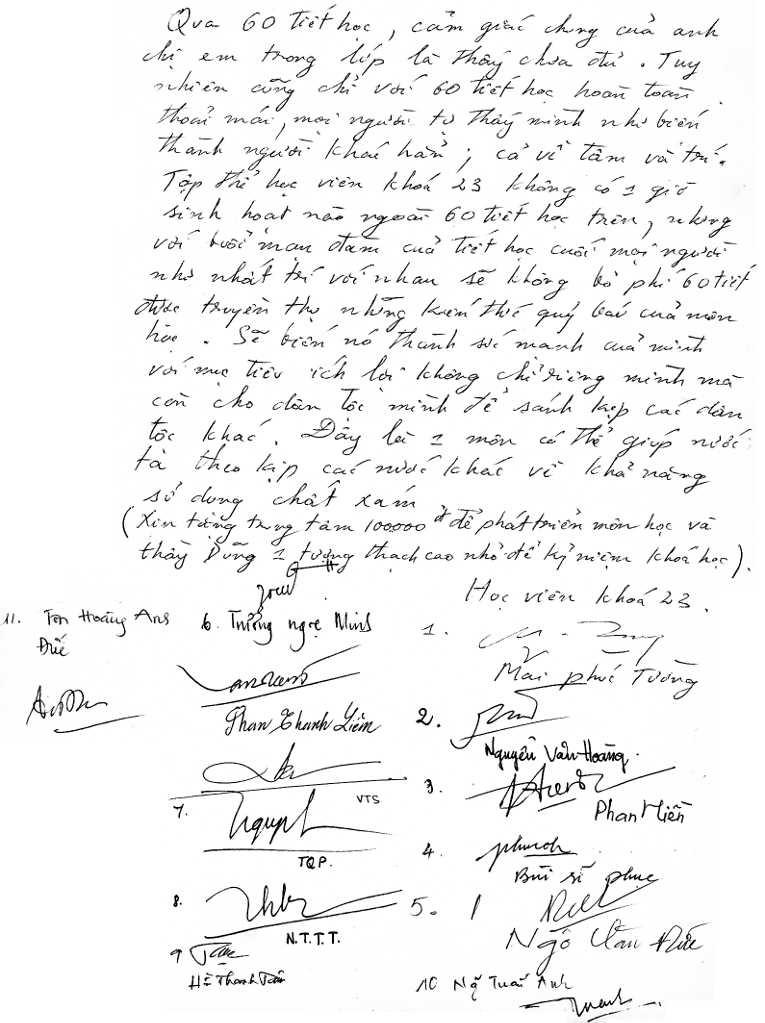 Qua 60 tiết học, cảm giác chung của anh
chị em trong lớp là thấy chưa đủ. Tuy
nhiên cũng chỉ với 60 tiết học hoàn toàn
thoải mái, mọi người tự thấy mình như biến
thành người khác hẳn; cả về tâm và trí.
Tập thể học viên khoá 23 không có 1 giờ
sinh hoạt nào ngoài 60 tiết học trên, nhưng
với buổi mạn đàm của tiết học cuối mọi người
như nhất trí với nhau sẽ không bỏ phí 60 tiết
được truyền thụ những kiến thức quý báu của môn
học. Sẽ biến nó thành sức mạnh của mình
với mục tiêu ích lợi không chỉ riêng mình mà
còn cho dân tộc mình để sánh kịp các dân
tộc khác. Đây là 1 môn có thể giúp nước
ta theo kịp các nước khác về khả năng
sử dụng chất xám
(Xin tặng trung tâm 100000đ để phát triển môn học và
thầy Dũng 1 tượng thạch cao nhỏ để kỷ niệm khoá học).
Học viên khoá 23.
1.
Mai phúc Tường
2.
Nguyễn Văn Hoàng.
3.
Phan Hiền
4.
Bùi sĩ phục
5.
Ngô Văn Đức
6. Trương ngọc Minh
Phan Thanh Liêm
VTS
7.
TQP.
8.
N.T.T.T.
9
Hồ Thanh Tân
10 Ng Tuấn Anh
11. Tôn Hoàng Ans
Đức